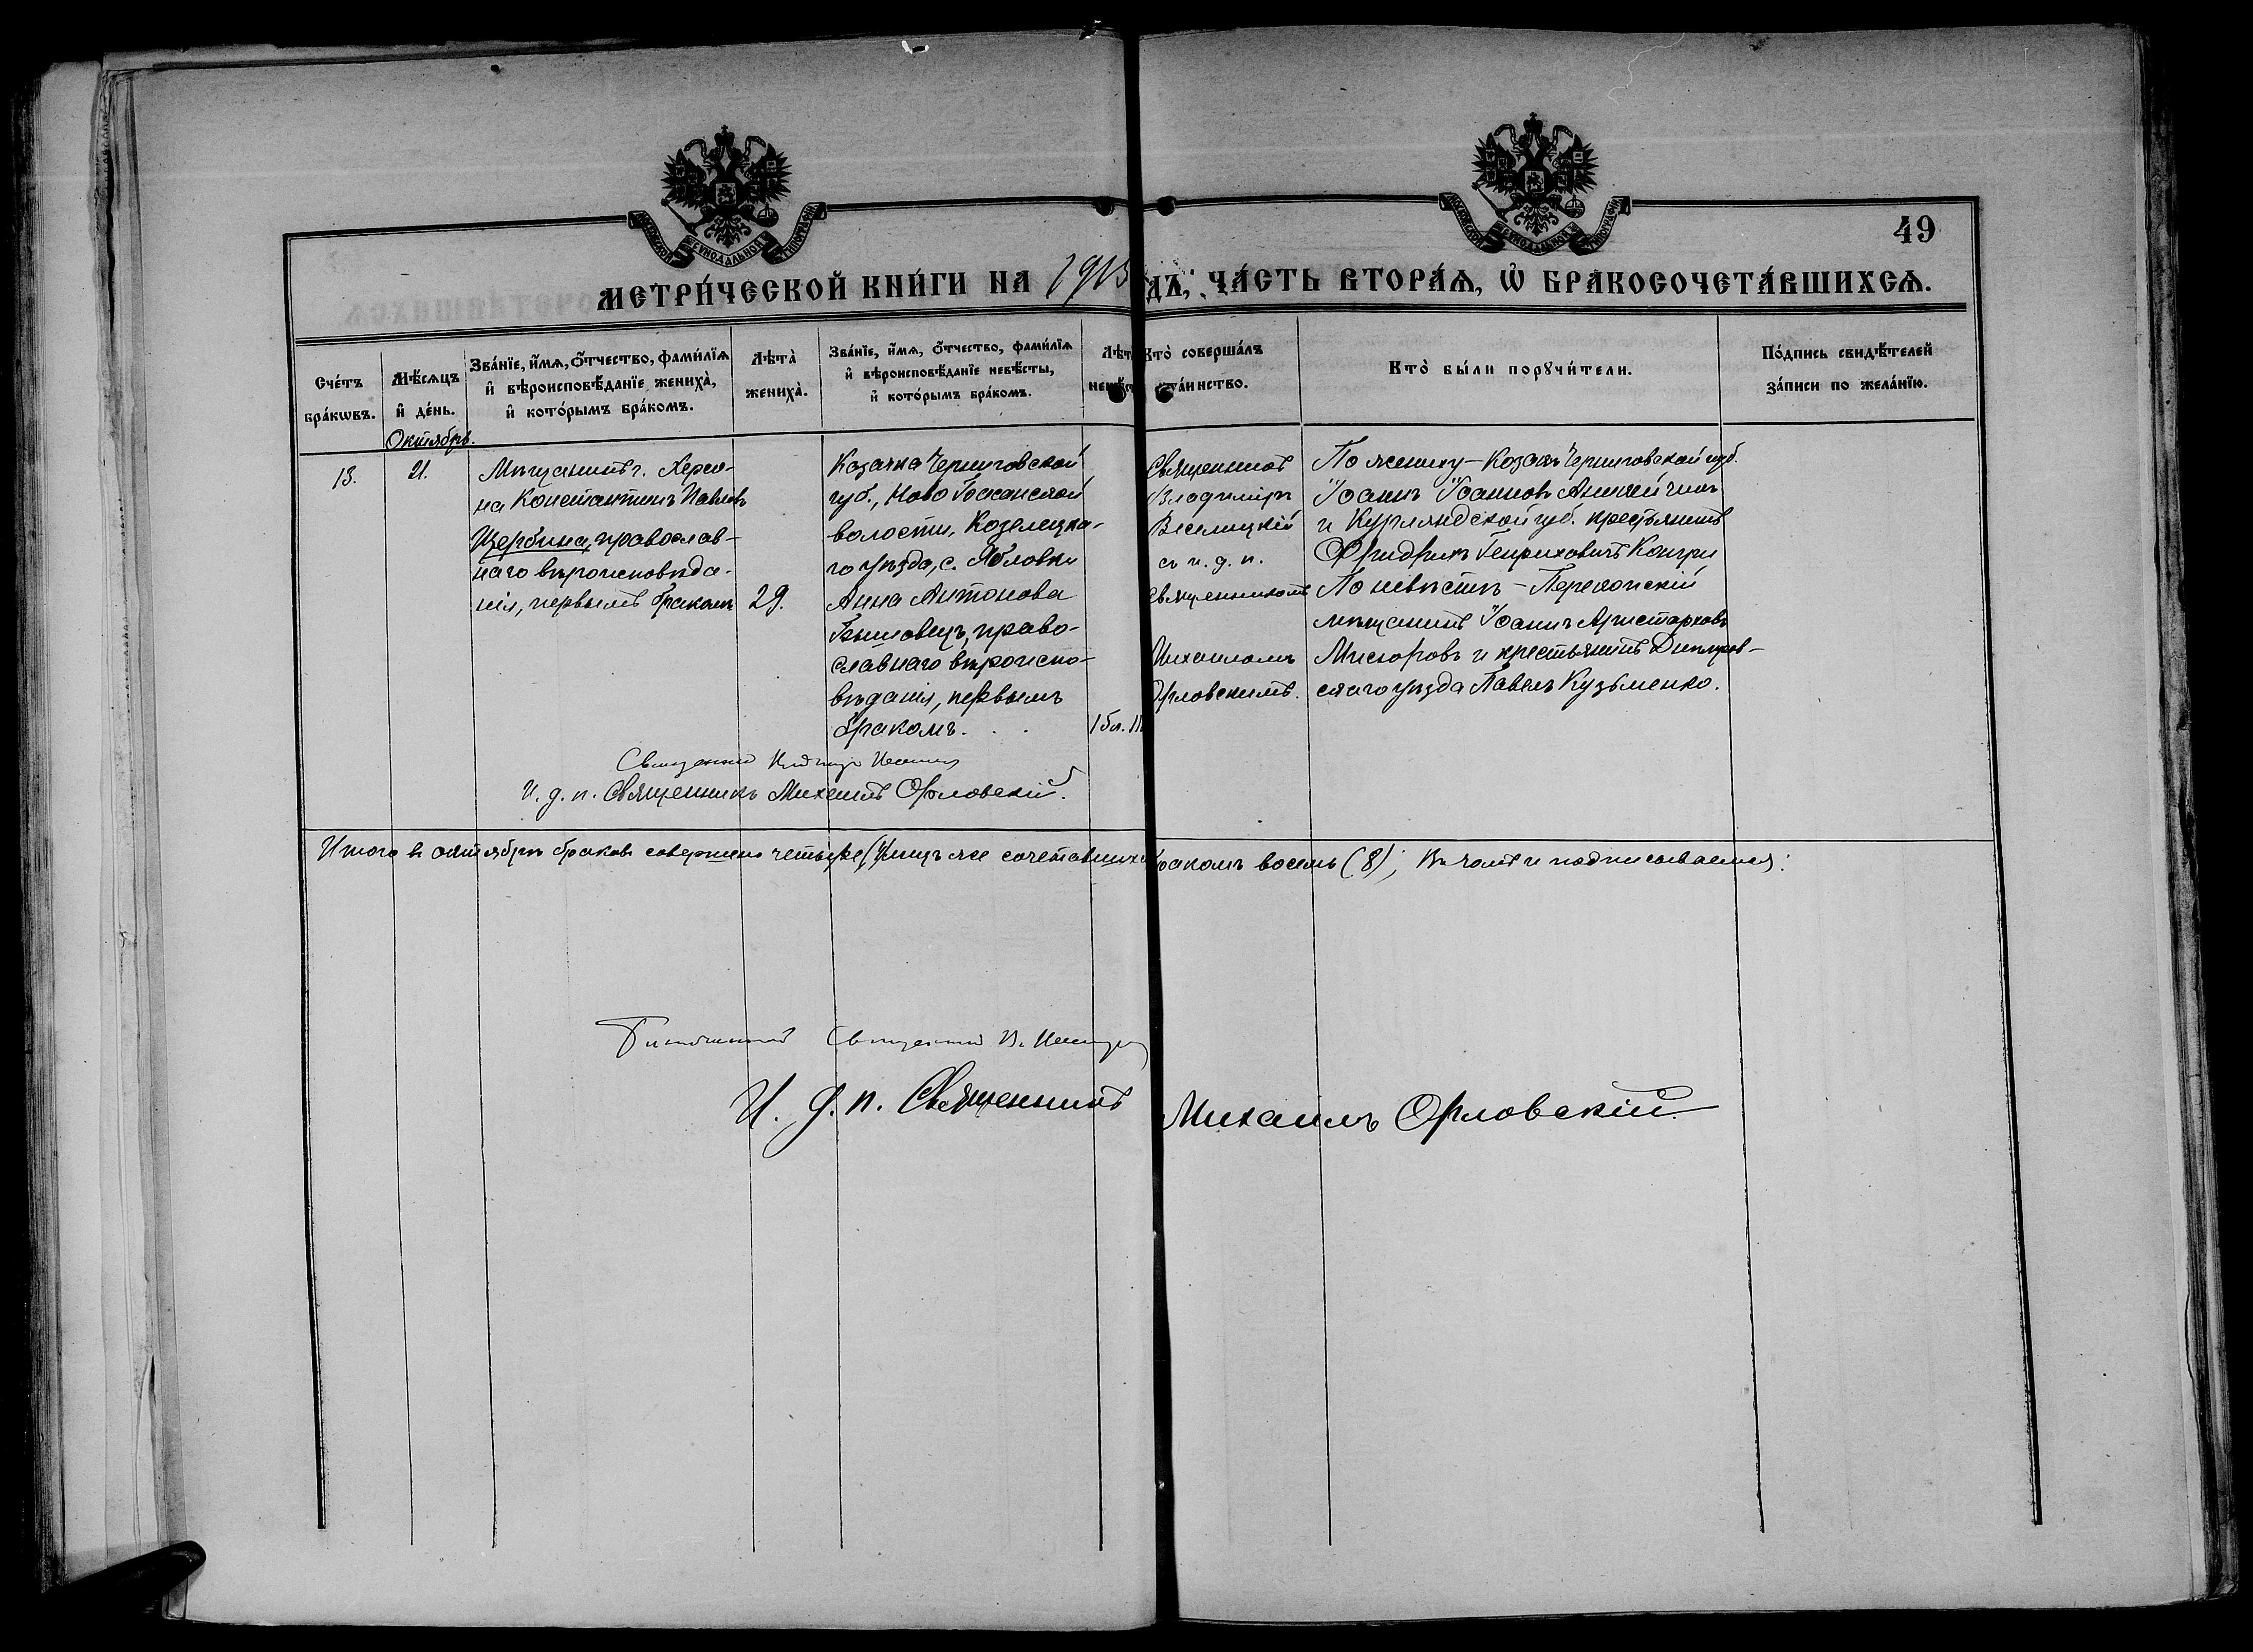 МОСКОВСКОЙ СѴНОДАЛЬНОЙ ТИПОГРАФІИ
МОСКОВСКОЙ СѴНОДАЛЬНОЙ ТИПОГРАФІИ
49
МЕТРИ́ЧЕСКОЙ КНИ́ГИ НА 1913
ДЪ, ЧА́СТЬ ВТОРА́Ѧ, Ѽ БРАКОСОЧЕТА́ВШИХСѦ.
Сче́тъ бра́кѡвъ.
Мѣ́сѧцъ и҆ де́нь.
Зва́нїе, и҆́мѧ, ѻ҆́тчество, фами́лїѧ и҆ вѣроисповѣ́данїе жениха̀, и҆ кото́рымъ бра́комъ.
Лѣта̀ жениха̀.
Зва́нїе, и҆́мѧ, ѻ҆́тчество, фами́лїѧ и҆ вѣроисповѣ́данїе невѣ́сты, и҆ кото́рымъ бра́комъ.
Лѣт невѣст
Кто̀ соверша́лъ та́инство.
Кто̀ бы́ли порꙋчи́тели.
По́дпись свидѣ́телей за́писи по жела́нїю.
Октябрь.
13.
21.
Мѣщанинъ г. Херсо-
на Константинъ Павловъ
Щербина, православ-
наго вѣроисповѣда-
нія, первымъ бракомъ
29.
Козачка Черниговской
губ., Ново Басанской
волости, Козелецка-
го уѣзда, с. Ябловки
Анна Антонова
право-
славнаго вѣроиспо-
вѣданія, первымъ
бракомъ.
15л. 11
Священникъ
Владиміръ
Веселицкій
съ и. д. п.
священникомъ
Михаиломъ
Орловскимъ.
По жениху – Козакъ Черниговской губ.
Іоаннъ Іоанновъ
и Курляндской губ. крестьянинъ
Фридрихъ Генриховичъ
По невѣстѣ – Перекопскій
мѣщанинъ Іоаннъ Аристарховъ
Мискоровъ и крестьянинъ Днѣпров-
скаго уѣзда Павелъ Кузьменко.
Священникъ
И. д. п. Священникъ Михаилъ Орловскій.
Итого въ октябрѣ браковъ совершено четыре (лицъ же сочетавшихся
бракомъ восемь (8); Въ чемъ и подписываемся:
Священникъ В.
И. д. п. Священникъ Михаилъ Орловскій.